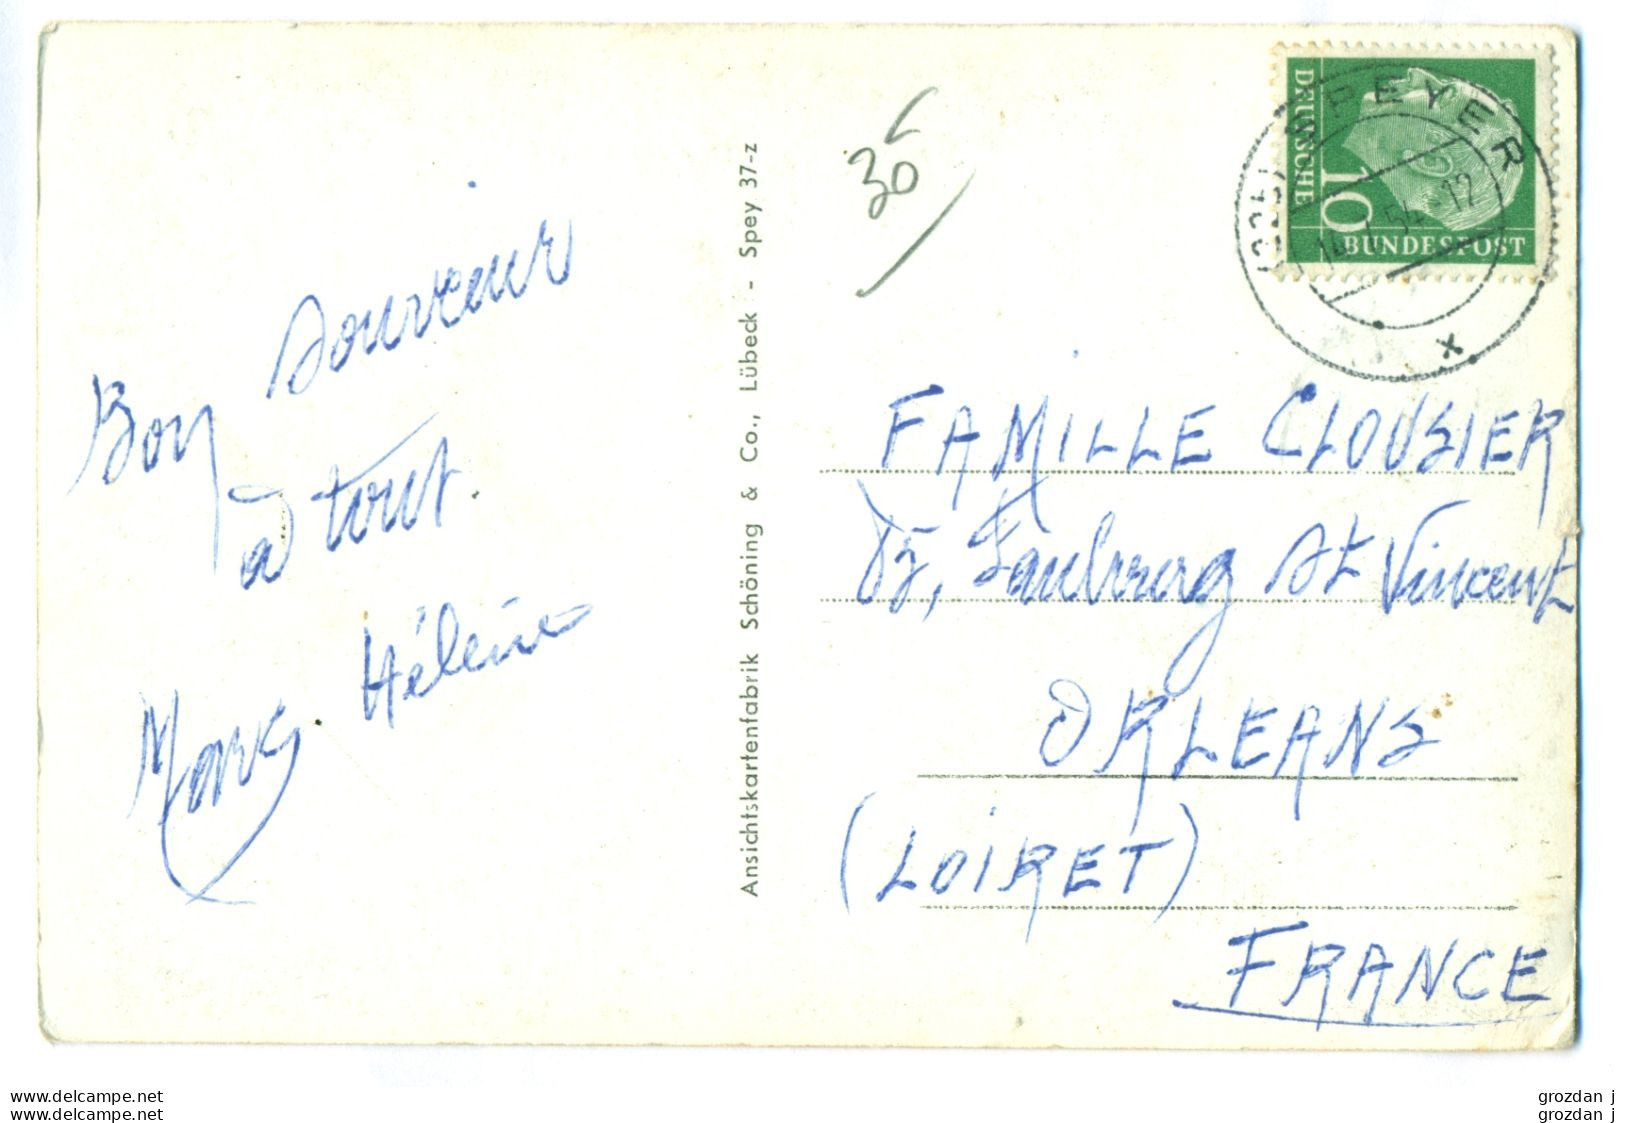 Bon souvenir
à tout.
Hélène
Ansichtskartenfabrik Schöning & Co., Lübeck - Spey 37-z
30
DEUTSCHE
10
BUNDESPOST
SPEYER
54 - 12
x
FAMILLE CLOUSIER
85, Faubourg St Vincent
ORLEANS
(LOIRET)
FRANCE
www.delcampe.net
www.delcampe.net
grozdan j
grozdan j